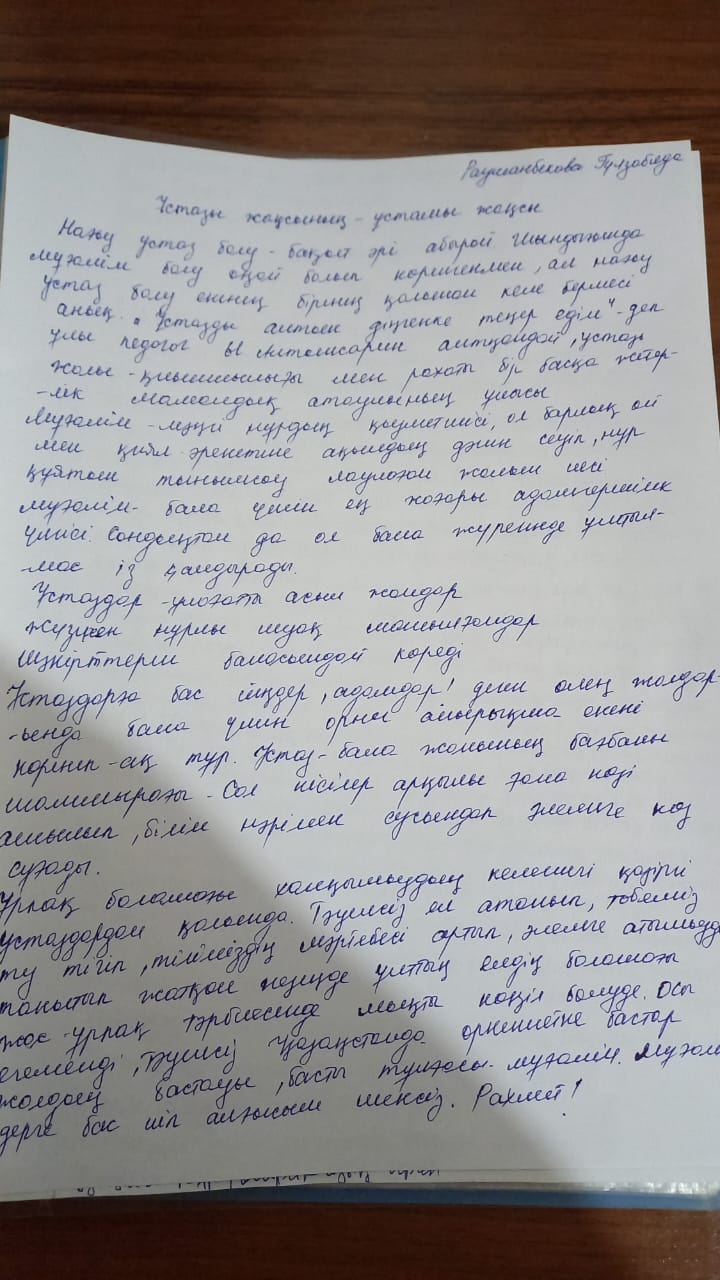 Раушанбекова Гүлзабида
Ұстазы жақсының - ұстамы жақсы
Нағыз ұстаз болу - бақыт әрі абырой. Шындығында
мұғалім болу оңай болып көрінгенмен, ал нағыз
ұстаз болу екінің бірінің қолынан келе бермесі
анық. "Ұстазды алтын діңгекке теңер едім" - деп
ұлы педагог Ы Алтынсарин айтқандай, ұстаз
жолы - қиыншылығы мен рахаты бір басқа жетер-
-лік мамандық атаулының ұлысы
Мұғалім - мәңгі нұрдың қызметшісі, ол барлық ой
мен қиял әрекетіне ақылдың дәнін сеуіп, нұр
құятын тынымсыз лаулаған жалын иесі
мұғалім - бала үшін ең жоғары адамгершілік
үлгісі. Сондықтан да ол бала жүрегінде ұмтыл-
-мас із қалдырады.
Ұстаздар - ұлағатты асыл жандар
Жүзінен нұрлы шуақ танығандар
Шәкірттерін баласындай көреді
Ұстаздарға бас иіңдер, адамдар! деген өлең жолдар-
-ында бала үшін орны айырықша екені
көрініп-ақ тұр. Ұстаз - бала жанының бағбаны
шамшырағы - Сол кісілер арқылы ғана көзі
ашылып, білім нәрімен сусындап әлемге көз
сүзеды.
Ұрпақ болашағы халқымыздың келешегі қазіргі
ұстаздардың қолында. Тәуелсіз ел атанып, төбеміз
ту тігіп, тіліміздің мәртебесі артып, әлемге атымызды
танытып жатқан кезеңде ұлттың елдің болашағы
жас - ұрпақ тәрбиесінде мықты көңіл бөлуде. Осы
егеменді, тәуелсіз Қазақстанда өркениетке бастар
жолдың бастауы, басты тұлғасы - мұғалім. Мұғалім
дерге бас иіп алғысым шексіз. Рахмет!